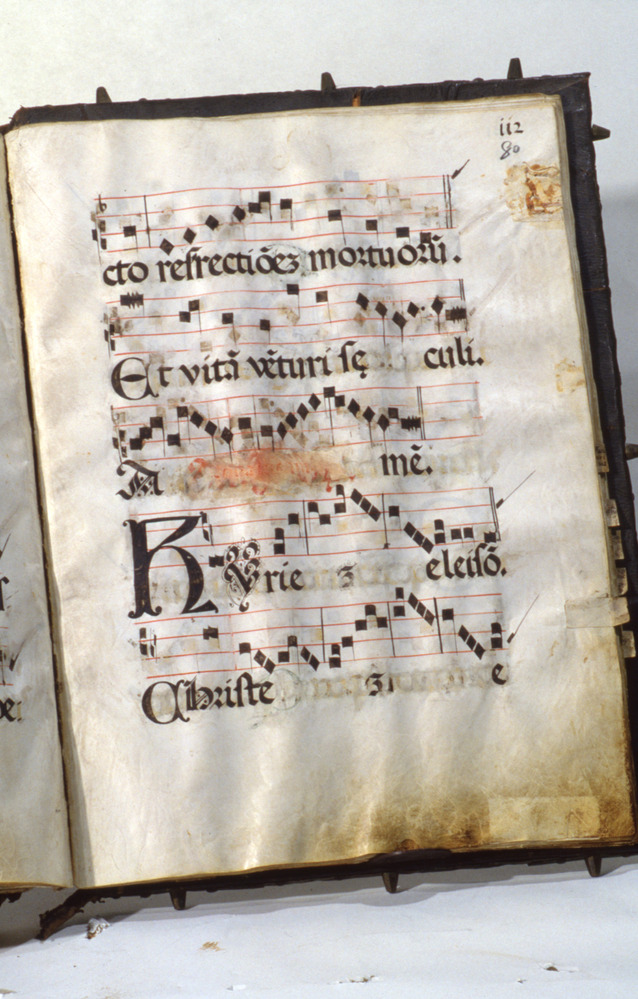 112
80
cto resrectiões mortuorũ.
Et vitã vẽturi sę culi.
A mẽ.
Kyrie 3 eleisõ.
Christe 3 e